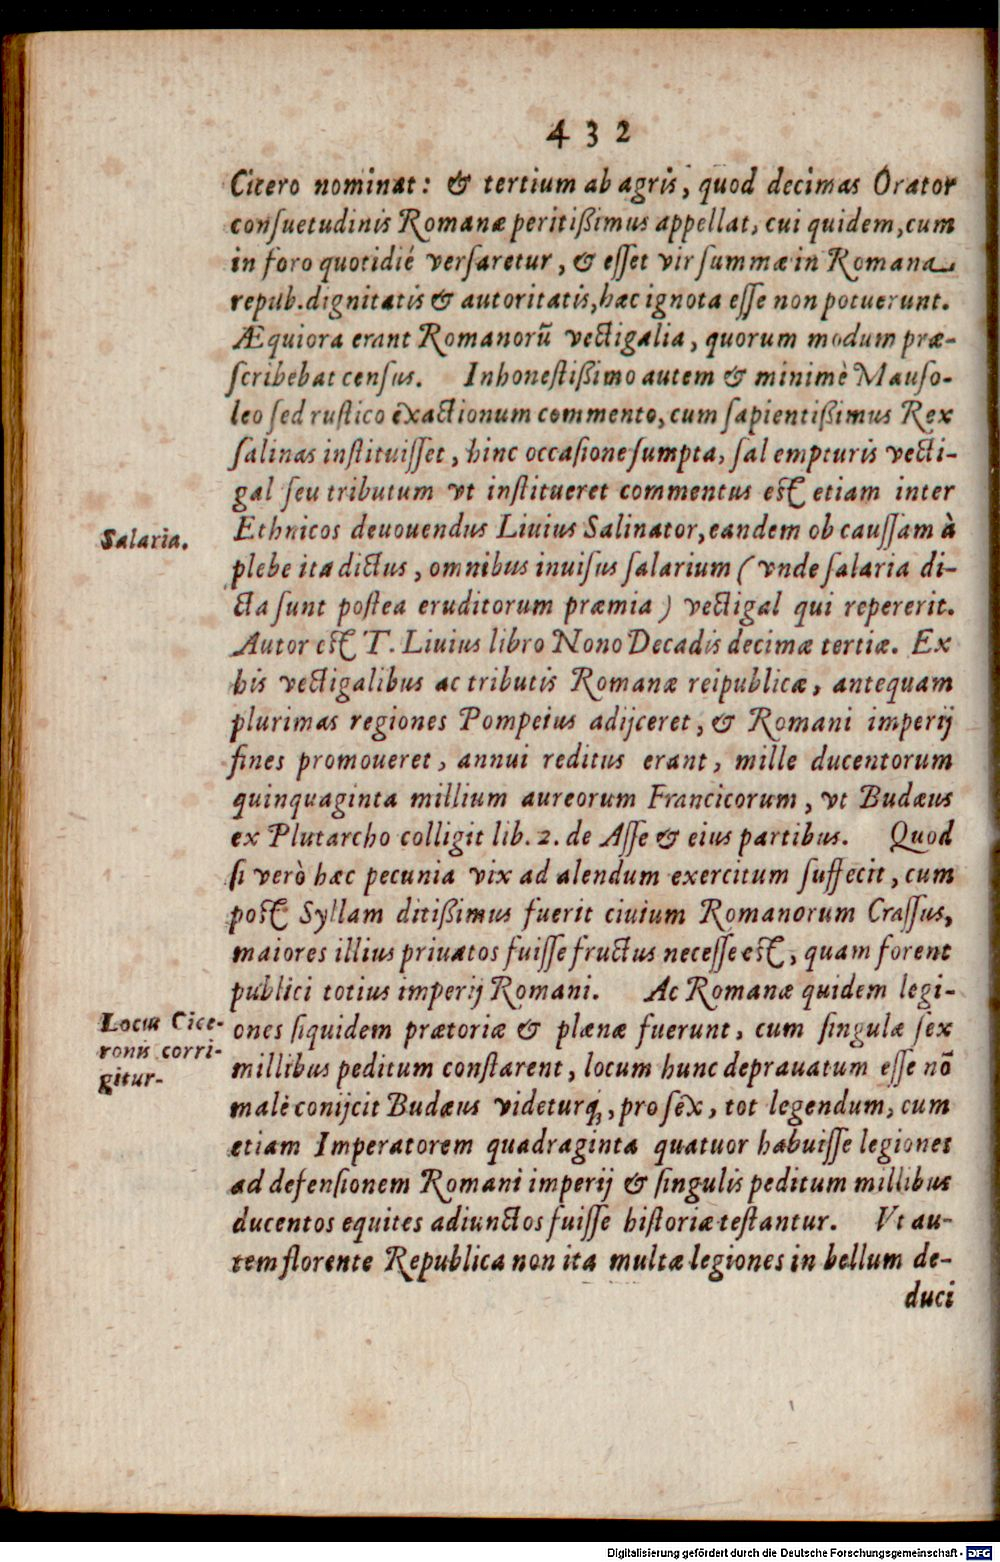 432
Cicero nominat: & tertium ab agris, quod decimas Orator
conſuetudinis Romanæ peritißimus appellat, cui quidem, cum
in foro quotidié verſaretur, & eſſet vir ſummæ in Romana
repub. dignitatis & autoritatis, hæc ignota eſſe non potuerunt.
Æquiora erant Romanorũ vectigalia, quorum modum præ-
ſcribebat cenſus. Inhoneſtißimo autem & minimè Mauſo-
leo ſed ruſtico exactionum commento, cum ſapientißimus Rex
ſalinas inſtituiſſet, hinc occaſione ſumpta, ſal empturis vecti-
gal ſeu tributum vt inſtitueret commentus eſt etiam inter
Salaria.
Ethnicos deuouendus Liuius Salinator, eandem ob cauſſam à
plebe ita dictus, omnibus inuiſus ſalarium (vnde ſalaria di-
cta ſunt poſtea eruditorum præmia) vectigal qui repererit.
Autor eſt T. Liuius libro Nono Decadis decimæ tertiæ. Ex
his vectigalibus ac tributis Romanæ reipublicæ, antequam
plurimas regiones Pompeius adijceret, & Romani imperij
fines promoueret, annui reditus erant, mille ducentorum
quinquaginta millium aureorum Francicorum, vt Budæus
ex Plutarcho colligit lib. 2. de Aſſe & eius partibus. Quod
ſi verò hæc pecunia vix ad alendum exercitum ſuffecit, cum
poſt Syllam ditißimus fuerit ciuium Romanorum Craſſus,
maiores illius priuatos fuiſſe fructus neceſſe eſt, quam forent
publici totius imperij Romani. Ac Romanæ quidem legi-
Locus Cice-
ronis corri-
gitur.
ones ſiquidem prætoriæ & plænæ fuerunt, cum ſingulæ ſex
millibus peditum conſtarent, locum hunc deprauatum eſſe nõ
malè conijcit Budæus videturq́;, pro ſex, tot legendum, cum
etiam Imperatorem quadraginta quatuor habuiſſe legiones
ad defenſionem Romani imperij & ſingulis peditum millibus
ducentos equites adiunctos fuiſſe hiſtoriæ teſtantur. Vt au-
tem florente Republica non ita multæ legiones in bellum de-
duci
Digitalisierung gefördert durch die Deutsche Forschungsgemeinschaft - DFG